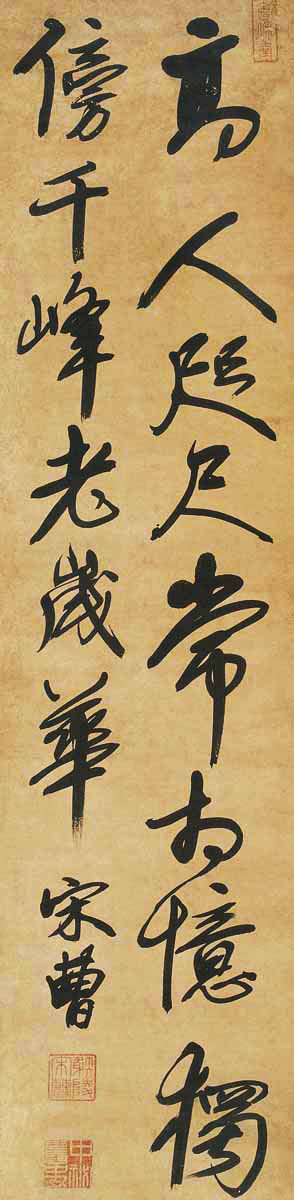 高人咫尺常相憶獨
傍千峰老歲華
宋曹